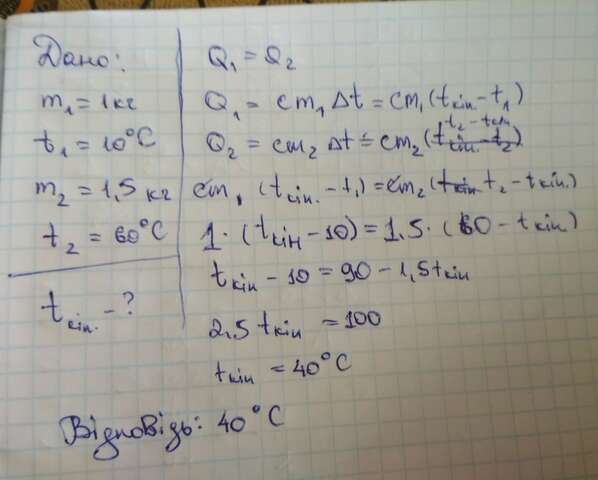 Дано:
m₁ = 1 кг
t₁ = 10°C
m₂ = 1,5 кг
t₂ = 60°C
tкін. - ?
Q₁ = Q₂
Q₁ = cm₁Δt = cm₁(tкін - t₁)
Q₂ = cm₂Δt = cm₂(tкін - t₂)
t₂ - tкін
cm₁ (tкін. - t₁) = cm₂(tкін t₂ - tкін.)
1 · (tкін - 10) = 1.5 · (60 - tкін)
tкін - 10 = 90 - 1,5tкін
2.5 tкін = 100
tкін = 40°C
Відповідь: 40°C